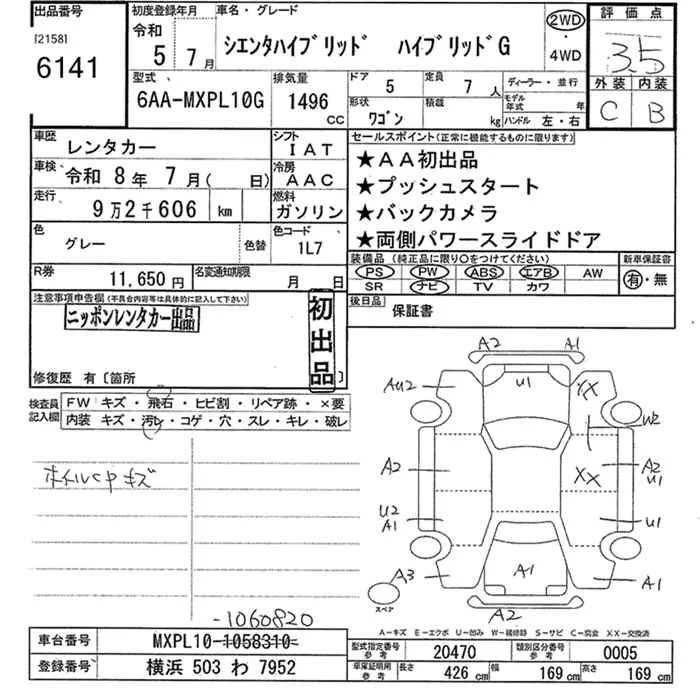 出品番号
[2158]
6141
初度登録年月
令和
5年 7月
車名・グレード
シエンタハイブリッド ハイブリッドG
2WD
・
4WD
評価点
3.5
外装 内装
C B
型式
6AA-MXPL10G
排気量
1496
CC
ドア
5
定員
7人
形状
ワゴン
積載
kg
ディーラー・並行
モデル年式 年
ハンドル 左・右
車歴
レンタカー
シフト
IAT
車検
令和 8年 7月( 日)
冷房
AAC
走行
9万2千606 km
燃料
ガソリン
色
グレー
色替
色コード
1L7
R券
11,650円
名変通知期限
月 日
セールスポイント(正常に機能するものに限ります)
★AA初出品
★プッシュスタート
★バックカメラ
★両側パワースライドドア
装備品(純正品に限り○をつけてください)
新車保証書
PS PW ABS エアB AW
SR ナビ TV カワ
有・無
後日品
保証書
注意事項申告欄(不具合内容等は具体的に記入して下さい)
ニッポンレンタカー出品
初出品
修復歴 有〔箇所 〕
検査員記入欄
FW キズ・飛石・ヒビ割・リペア跡・×要
内装 キズ・汚レ・コゲ・穴・スレ・キレ・破レ
ホイルCPキズ
A2 A1
AU2 U1 XX
W2
A2 XX A2
U1
U2
A1 U1
A3 A1 A1
スペア
A2
A-キズ E-エクボ U-凹み W-補修跡 S-サビ C-腐食 XX-交換済
-1060820
車台番号
MXPL10-1058310-
登録番号
横浜 503 わ 7952
型式指定番号
参考
20470
類別区分番号
参考
0005
車庫証明用
参考
長さ 426 cm 幅 169 cm 高さ 169 cm